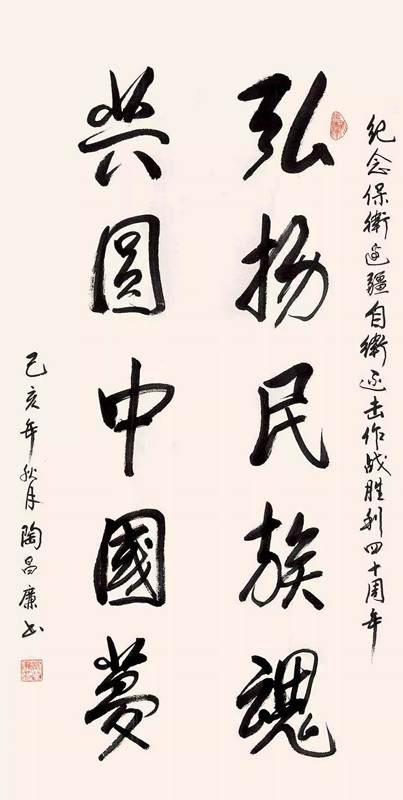 纪念保衛边疆自衛还击作战胜利四十周年
弘揚民族魂
共圆中國夢
己亥年秋月陶昌廉书